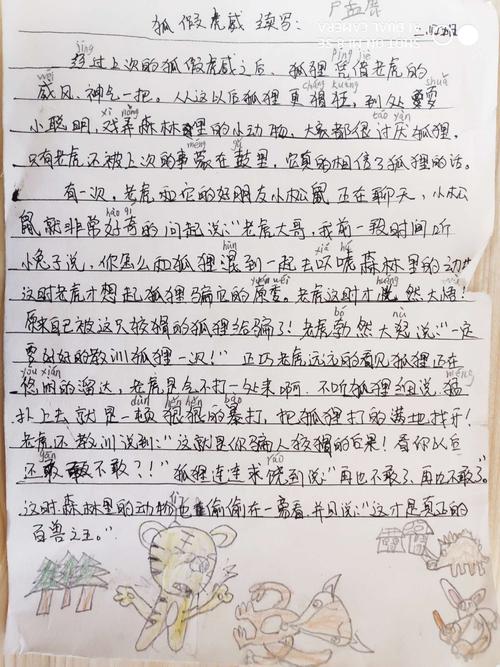 狐假虎威续写:
jīng píng jiè
经过上次的狐假虎威之后,狐狸凭借老虎的
wēi chāng kuáng shuǎ
威风,神气一把。从这以后狐狸更猖狂,到处耍
xì nòng tǎo yàn
小聪明,戏弄森林里的小动物,大家都很讨厌狐狸。
méng gǔ
只有老虎还被上次的事蒙在鼓里,它真的相信了狐狸的话。
有一次,老虎和它的好朋友小松鼠正在聊天,小松
hào qí
鼠就非常好奇的问起说:"老虎大哥,我前一段时间听
hùn xià hǔ
小兔子说,你怎么和狐狸混到一起去吓唬森林里的动物
huǎng
这时老虎才想起狐狸骗它的原委。老虎这时才恍然大悟!
bó nù
原来自己被这只狡猾的狐狸给骗了!老虎勃然大怒说:"一定
要好好的教训狐狸一次!"正巧老虎远远的看见狐狸还在
yōu xián měng
悠闲的溜达,老虎是气不打一处来啊,不听狐狸细说,猛
dùn hěn hěn bào
扑上去就是一顿狠狠的暴打,把狐狸打的满地找牙!
老虎还教训说到:"这就是你骗人狡猾的后果!看你以后
gǎn yáo
还敢不敢?!"狐狸连连求饶到说"再也不敢了,再也不敢了"。
这时森林里的动物也偷偷在一旁看,并且说:"这才是真正的
百兽之王。"